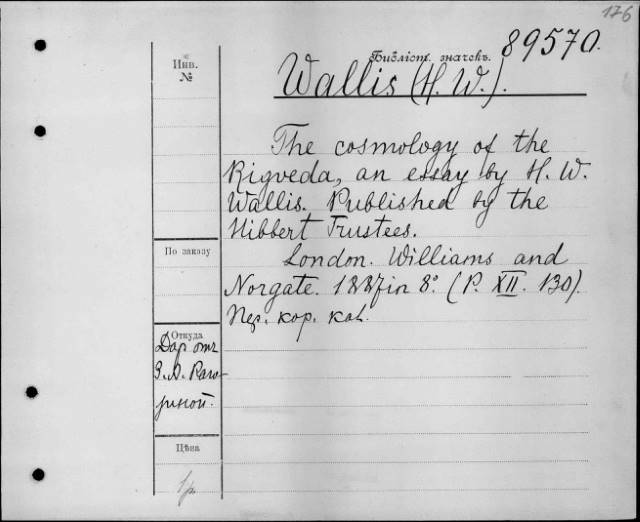 176
89570.
Библіот. значекъ.
Wallis (H. W.).
Инв.
№
The cosmology of the
Rigveda, an essay by H. W.
Wallis. Published by the
Hibbert Trustees.
London. Williams and
Norgate. 1887 in 8°. (P. XII. 130).
Пер. кор. кол.
По заказу
Откуда
Дар отъ
З. А. Раго-
зиной.
Цѣна
1 р.